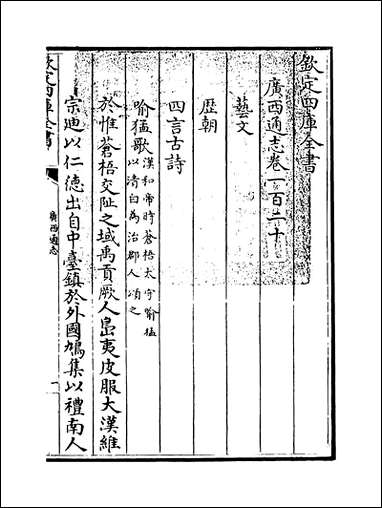 欽定四庫全書
廣西通志卷一百二十
藝文
歴朝
四言古詩
喻猛歌漢和帝時蒼梧太守喻猛
以清白為治郡人頌之
於惟蒼梧交阯之域禹貢厥人島夷皮服大漢維
宗迪以仁德出自中臺鎮於外國鳩集以禮南人
欽定四庫全書
廣西通志
一